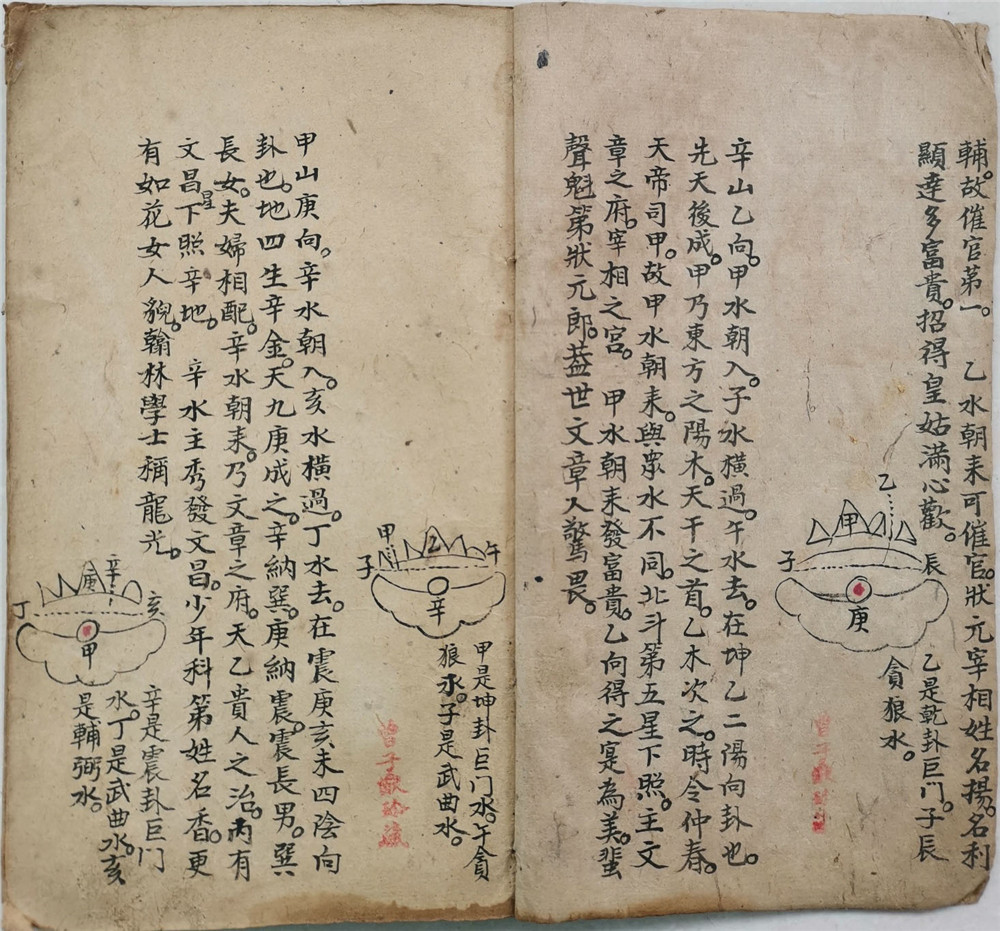 輔。故催官第一。　乙水朝来可催官。狀元宰相姓名揚。名利
顯達多富貴。招得皇姑滿心歡。
乙
甲
子
辰
庚
乙是乾卦巨門。子辰
貪狼水。
辛山乙向。甲水朝入。子水橫過。午水去。在坤乙二陽向卦也。
先天後成。甲乃東方之陽木。天干之首。乙木次之。時令仲春。
天帝司甲。故甲水朝来。與眾水不同。北斗第五星下照。主文
章之府。宰相之宮。　甲水朝来發富貴。乙向得之寔為美。蜚
聲魁第狀元郎。蓋世文章人驚畏。
甲
乙
午
子
辛
甲是坤卦巨门水。午貪
狼水。子是武曲水。
甲山庚向。辛水朝入。亥水橫過。丁水去。在震庚亥未四陰向
卦也。地四生辛金。天九庚成之。辛納巽。庚納震。震長男。巽
長女。夫婦相配。辛水朝来。乃文章之府。天乙貴人之治。丙有
文昌星下照辛地。　辛水主秀發文昌。少年科第姓名香。更
有如花女人貌。翰林學士稱龍光。
辛
丁
亥
甲
辛是震卦巨门
水。丁是武曲水。亥
是輔弼水。